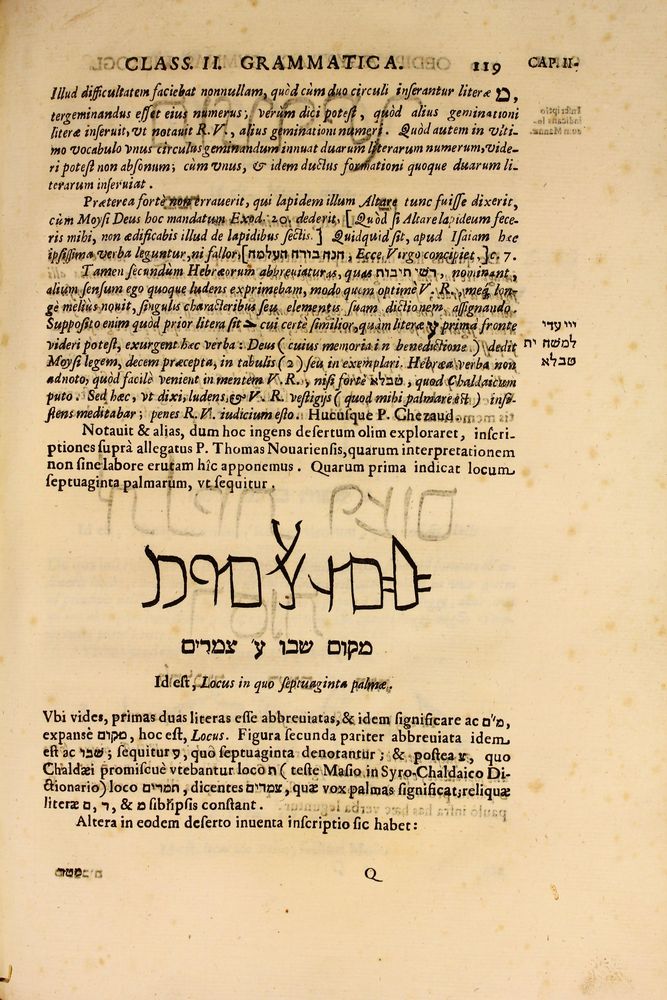 CLASS. II. GRAMMATICA. 119 CAP. II.
Illud difficultatem faciebat nonnullam, quòd cùm duo circuli inserantur literæ מ,
tergeminandus esset eius numerus; verùm dici potest, quòd alius geminationi
literæ inseruit, vt notauit R. V., alius geminationi numeri. Quòd autem in vlti-
mo vocabulo vnus circulus geminandum innuat duarum literarum numerum, vide-
ri potest non absonum; cùm vnus, & idem ductus formationi quoque duarum li-
terarum inseruiat.
Præterea fortè non errauerit, qui lapidem illum Altare tunc fuisse dixerit,
cùm Moysi Deus hoc mandatum Exod. 20. dederit, [Quòd si Altare lapideum fece-
ris mihi, non ædificabis illud de lapidibus sectis.] Quidquid sit, apud Isaiam hæc
ipsissima verba leguntur, ni fallor, [הנה בורה העלמה, Ecce Virgo concipiet.] c. 7.
Tamen secundùm Hebræorum abbreuiaturas, quas ראשי תיבות, nominant,
alium sensum ego quoque ludens exprimebam, modo quem optimè V. R., meq. lon-
gè meliùs nouit, singulis characteribus seu elementis suam dictionem assignando.
Supposito enim quòd prior litera sit cui certè similior, quàm literæ ע prima fronte
videri potest, exurgent hæc verba: Deus (cuius memoria in benedictione) dedit
Moysi legem, decem præcepta, in tabulis (2) seu in exemplari. Hebræa verba non
adnoto, quòd facilè venient in mentem V. R., nisi fortè טבלא, quod Chaldaicum
puto. Sed hæc, vt dixi, ludens, & V. R. vestigijs (quod mihi palmare est) insi-
stens meditabar; penes R. V. iudicium esto. Hucúsque P. Chezaud.
יי עדי
למשה ית
טבלא
Notauit & alias, dum hoc ingens desertum olim exploraret, inscri-
ptiones suprà allegatus P. Thomas Nouariensis, quarum interpretationem
non sine labore erutam hîc apponemus. Quarum prima indicat locum
septuaginta palmarum, vt sequitur.
מקום שבו ע׳ צמרים
Id est, Locus in quo septuaginta palmæ.
Vbi vides, primas duas literas esse abbreuiatas, & idem significare ac מ״ם,
expansè מקום, hoc est, Locus. Figura secunda pariter abbreuiata idem
est ac שבו; sequitur ע, quo septuaginta denotantur; & postea צ, quo
Chaldæi promiscuè vtebantur loco ת (teste Masio in Syro-Chaldaico Di-
ctionario) loco תמרים, dicentes צמרים, quæ vox palmas significat; reliquæ
literæ ם, ר, & מ sibi ipsis constant.
Altera in eodem deserto inuenta inscriptio sic habet:
Q